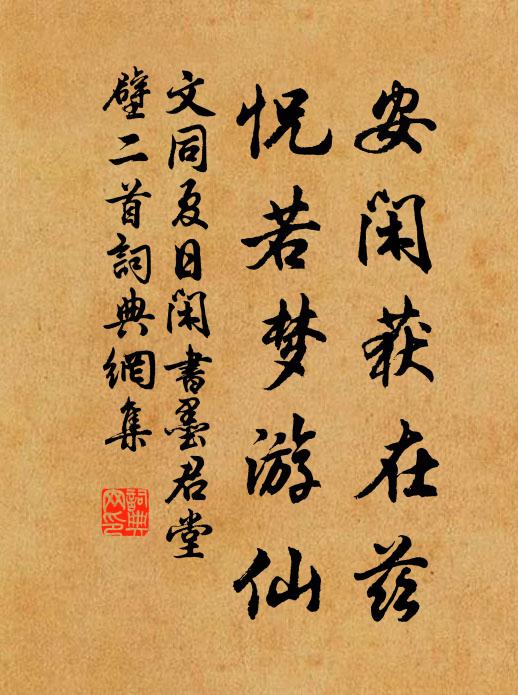 安闲获在兹
怳若梦游仙
文同夏日闲書墨君堂
壁二首詞典網集
詞典网印